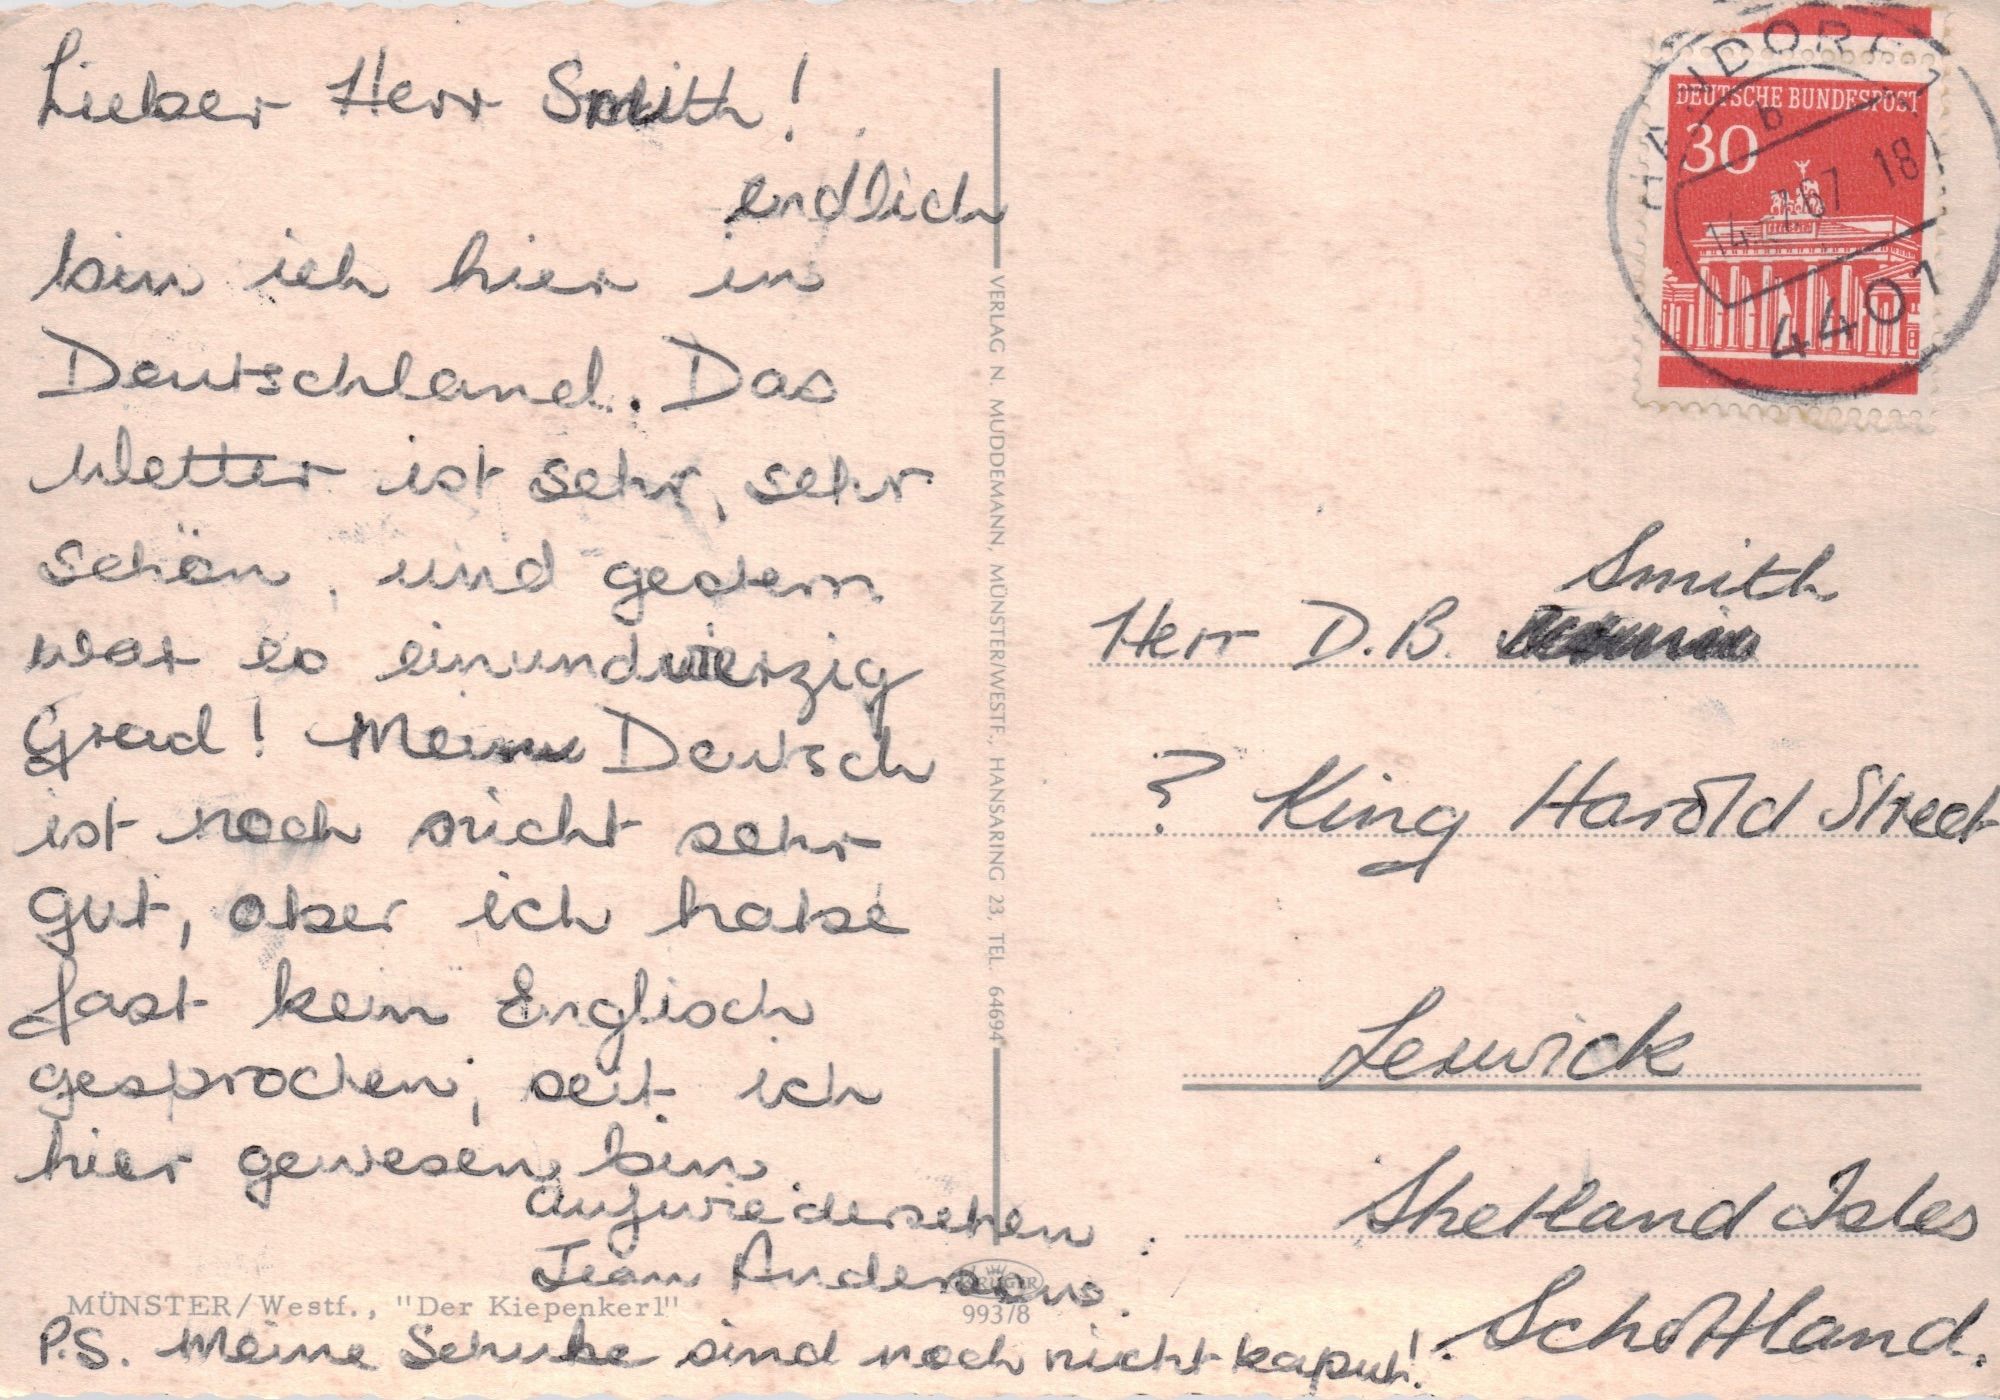 Lieber Herr Smith!
endlich
bin ich hier in
Deutschland. Das
Wetter ist sehr, sehr
schön, und gestern
war es einundvierzig
Grad! Mein Deutsch
ist noch nicht sehr
gut, aber ich habe
fast kein Englisch
gesprochen, seit ich
hier gewesen bin
aufwiedersehen
Jean Anderson.
P.S. Meine Schuhe sind noch nicht kaput!
MÜNSTER/Westf., "Der Kiepenkerl"
KRÜGER
993/8
VERLAG N. MUDDEMANN, MÜNSTER/WESTF., HANSARING 23, TEL. 64694
DEUTSCHE BUNDESPOST
30
HANDORF
b
14.7.67 18
4401
Smith
Herr D.B.
? King Harold Street
Lerwick
Shetland Isles
Schottland.